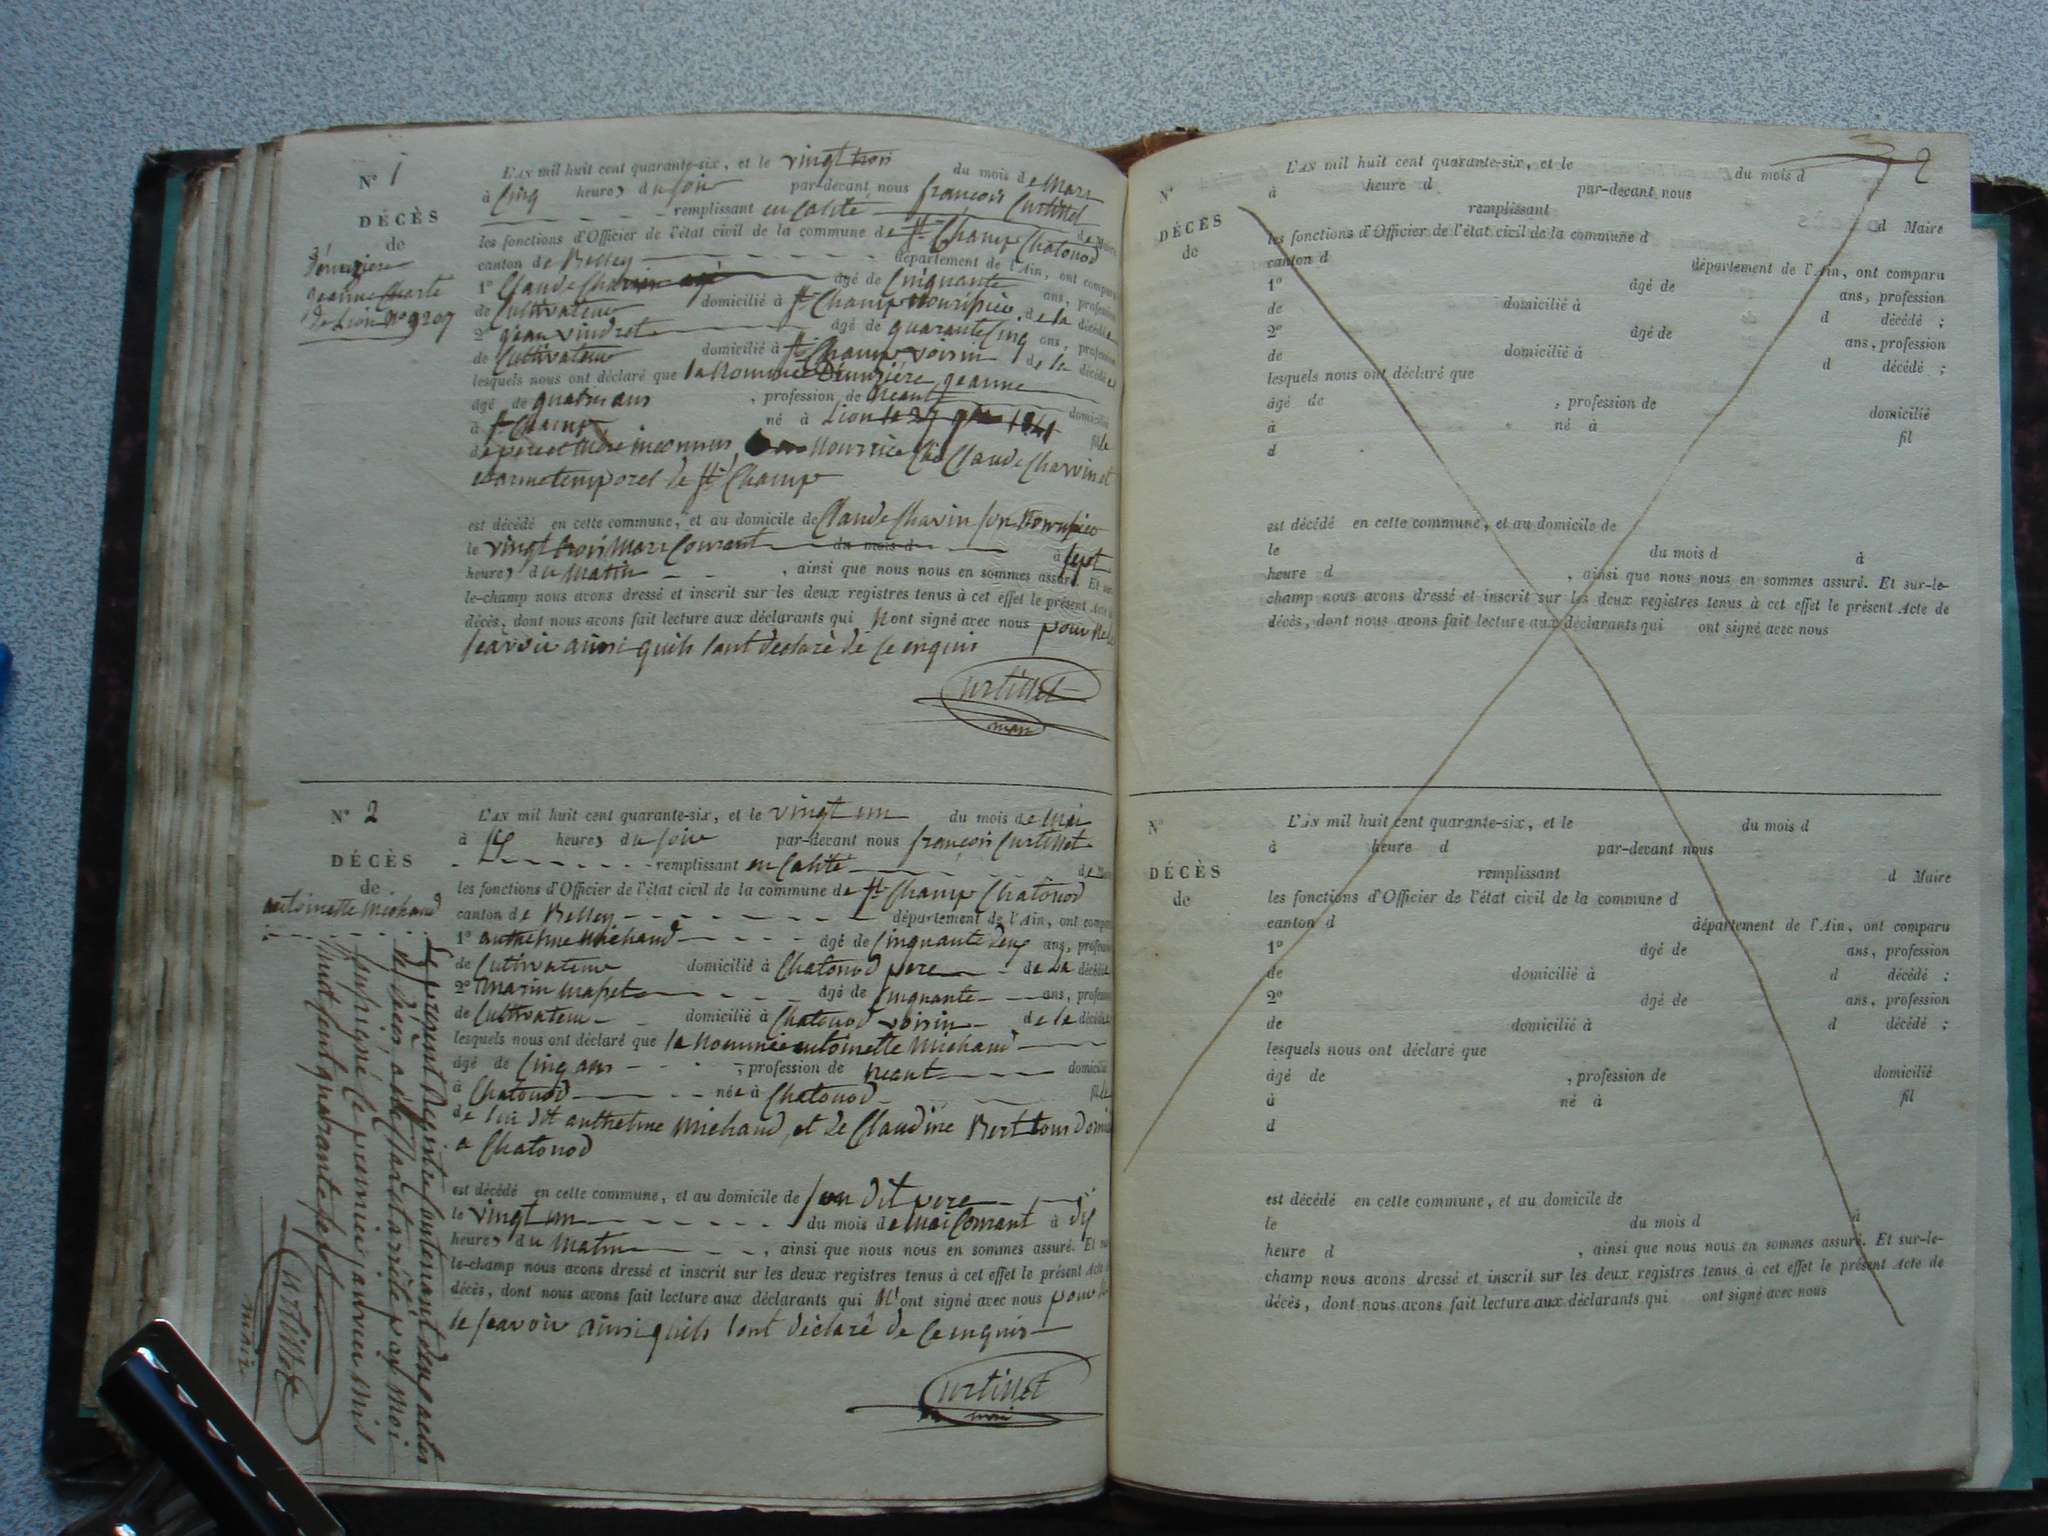 N° 1
DÉCÈS
de
Jeanne Charte
de Lion N° 9207
L'AN mil huit cent quarante-six, et le vingt trois du mois de Mars
à Cinq heures du soir par-devant nous françois Curtillet
remplissant en calité de Maire
les fonctions d'Officier de l'état civil de la commune de St Champ Chatonod
canton de Belley département de l'Ain, ont comparu
1° Claude Charvin âgé de Cinquante ans, profession
de Cultivateur domicilié à St Champ Nouricier de la décédée
2° jean vindret âgé de quarante Cinq ans, profession
de Cultivateur domicilié à St Champ voisin de la décédée
lesquels nous ont déclaré que la Nommée jeanne
âgé de quatre ans , profession de Neant domicilié
à St Champ né à Lion le 27 1841 fille
de père et mère inconnus Nourrice Ché Claude Charvin et
de St Champ
est décédé en cette commune, et au domicile de Claude Charvin son Nouricier
le vingt trois Mars Courant du mois d à sept
heures du Matin , ainsi que nous nous en sommes assuré. Et sur-
le-champ nous avons dressé et inscrit sur les deux registres tenus à cet effet le présent Acte de
décès, dont nous avons fait lecture aux déclarants qui N ont signé avec nous pour ne le
scavoir ainsi quils lont declaré de ce enquis
Curtillet
maire
N° 2
DÉCÈS
de
antoinette Michaud
L'AN mil huit cent quarante-six, et le vingt un du mois de Mai
à heures du soir par-devant nous françois Curtillet
remplissant en calité de Maire
les fonctions d'Officier de l'état civil de la commune de St Champ Chatonod
canton de Belley département de l'Ain, ont comparu
1° anthelme Michaud âgé de Cinquante deux ans, profession
de Cultivateur domicilié à Chatonod pere de la décédée
2° Marin Mapet âgé de Cinquante ans, profession
de Cultivateur domicilié à Chatonod voisin de la décédée
lesquels nous ont déclaré que la Nommée antoinette Michaud
âgé de Cinq ans , profession de neant domicilié
à Chatonod née à Chatonod fille
de lui dit anthelme Michaud et de Claudine Bert tous domiciliés
a Chatonod
est décédé en cette commune, et au domicile de son dit pere
le vingt un du mois de Mai Courant à dix
heures du Matin , ainsi que nous nous en sommes assuré. Et sur-
le-champ nous avons dressé et inscrit sur les deux registres tenus à cet effet le présent Acte de
décès, dont nous avons fait lecture aux déclarants qui N'ont signé avec nous pour ne
le scavoir ainsi quils lont déclaré de ce enquis
Curtillet
maire
Le présent Registre contenant deux actes
de décès, a été clos et arrêté par moi
soussigné le premier janvier mil
huit cent quarante sept
Curtillet
maire
2
N°
DÉCÈS
de
L'AN mil huit cent quarante-six, et le du mois d
à heure d par-devant nous
remplissant d Maire
les fonctions d'Officier de l'état civil de la commune d
canton d département de l'Ain, ont comparu
1° âgé de ans, profession
de domicilié à d décédé ;
2° âgé de ans, profession
de domicilié à d décédé ;
lesquels nous ont déclaré que
âgé de , profession de domicilié
à né à fil
d
est décédé en cette commune, et au domicile de
le du mois d à
heure d , ainsi que nous nous en sommes assuré. Et sur-le-
champ nous avons dressé et inscrit sur les deux registres tenus à cet effet le présent Acte de
décès, dont nous avons fait lecture aux déclarants qui ont signé avec nous
N°
DÉCÈS
de
L'AN mil huit cent quarante-six, et le du mois d
à heure d par-devant nous
remplissant d Maire
les fonctions d'Officier de l'état civil de la commune d
canton d département de l'Ain, ont comparu
1° âgé de ans, profession
de domicilié à d décédé ;
2° âgé de ans, profession
de domicilié à d décédé ;
lesquels nous ont déclaré que
âgé de , profession de domicilié
à né à fil
d
est décédé en cette commune, et au domicile de
le du mois d à
heure d , ainsi que nous nous en sommes assuré. Et sur-le-
champ nous avons dressé et inscrit sur les deux registres tenus à cet effet le présent Acte de
décès, dont nous avons fait lecture aux déclarants qui ont signé avec nous